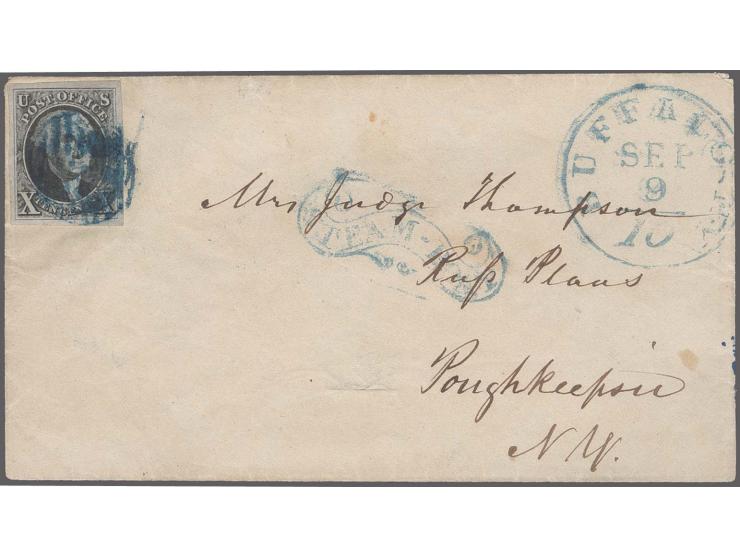 U S
POST OFFICE
X X
BUFFALO N.Y.
SEP
9
10
STEAM-BOAT
Mrs Judge Thompson
Rufs Plaas
Poughkeepsie
N.Y.